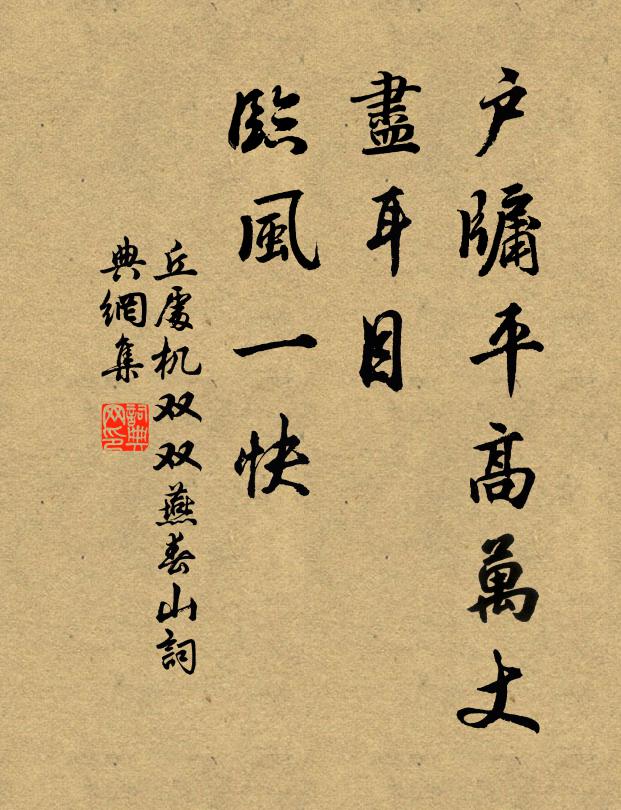 户牖平高萬丈
盡耳目
臨風一快
丘處机双双燕春山詞
典網集
詞典網印